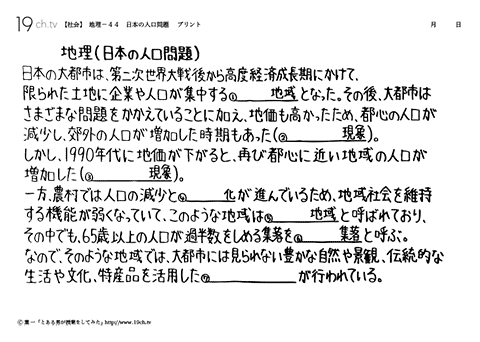 19 ch.tv 【社会】 地理－44 日本の人口問題 プリント 月 日
地理(日本の人口問題)
日本の大都市は、第二次世界大戦後から高度経済成長期にかけて、
限られた土地に企業や人口が集中する①____地域となった。その後、大都市は
さまざまな問題をかかえていることに加え、地価も高かったため、都心の人口が
減少し、郊外の人口が増加した時期もあった(②____現象)。
しかし、1990年代に地価が下がると、再び都心に近い地域の人口が
増加した(③____現象)。
一方、農村では人口の減少と④____化が進んでいるため、地域社会を維持
する機能が弱くなっていて、このような地域は⑤____地域と呼ばれており、
その中でも、65歳以上の人口が過半数をしめる集落を⑥____集落と呼ぶ。
なので、そのような地域では、大都市には見られない豊かな自然や景観、伝統的な
生活や文化、特産品を活用した⑦____が行われている。
Ⓒ 葉一「とある男が授業をしてみた」http://www.19ch.tv